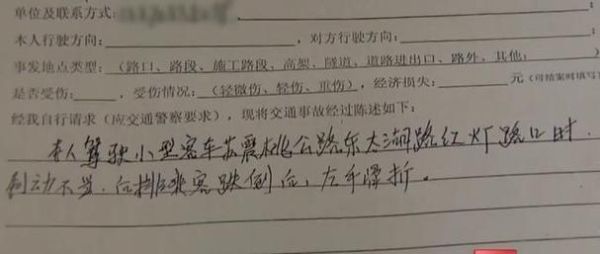 单位及联系方式:
本人行驶方向: , 对方行驶方向: ;
事发地点类型: (路口、路段、施工路段、高架、隧道、道路进出口、路外、其他: )
是否受伤: , 受伤情况: (轻微伤、轻伤、重伤), 经济损失: 元 (可结案时填写)
经我自行请求 (应交通警察要求), 现将交通事故经过陈述如下:
本人驾驶小型客车 震桃公路东太湖路红灯路口时
制动不当. 后排乘客跌倒后, 左手 折.